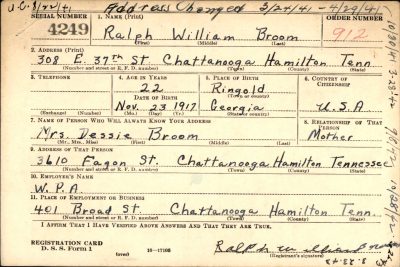 Address Changed 3/24/41 - 4/29/41
SERIAL NUMBER 1. Name (Print) ORDER NUMBER
4249 Ralph William Broom 912
(First) (Middle) (Last)
2. Address (Print)
308 E. 37th St. Chattanooga Hamilton Tenn
(Number and street or R. F. D. number) (Town) (County) (State)
3. Telephone 4. Age in Years 5. Place of Birth 6. Country of Citizenship
22 Ringold
Date of Birth (Town or county)
Nov. 23 1917 Georgia U.S.A
(Exchange) (Number) (Mo.) (Day) (Yr.) (State or country)
7. Name of Person Who Will Always Know Your Address 8. Relationship of That Person
Mrs. Dessie Broom Mother
(Mr., Mrs., Miss) (First) (Middle) (Last)
9. Address of That Person
3610 Fagon St. Chattanooga Hamilton Tennessee
(Number and street or R. F. D. number) (Town) (County) (State)
10. Employer's Name
W.P.A.
11. Place of Employment or Business
401 Broad St. Chattanooga Hamilton Tenn.
(Number and street or R. F. D. number) (Town) (County) (State)
I Affirm That I Have Verified Above Answers and That They Are True.
REGISTRATION CARD
D. S. S. Form 1 16-17105 (Registrant's signature)
Ralph William